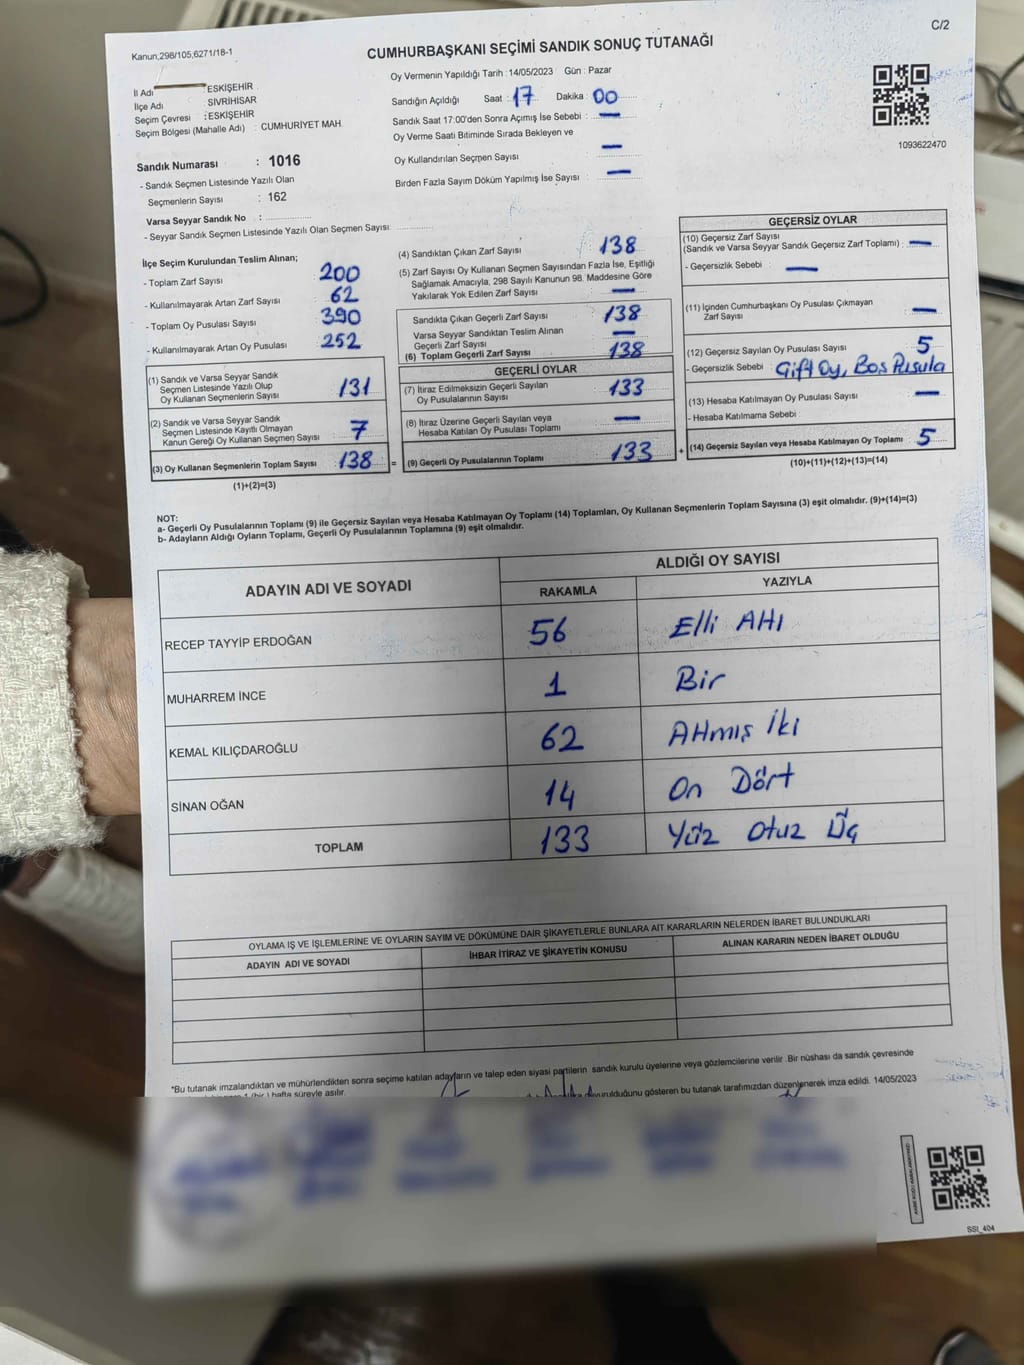 C/2
Kanun,298/105;6271/18-1
CUMHURBAŞKANI SEÇİMİ SANDIK SONUÇ TUTANAĞI
İl Adı : ESKİŞEHİR
İlçe Adı : SİVRİHİSAR
Seçim Çevresi : ESKİŞEHİR
Seçim Bölgesi (Mahalle Adı) : CUMHURİYET MAH
Oy Vermenin Yapıldığı Tarih : 14/05/2023 Gün : Pazar
Sandığın Açıldığı Saat : 17 Dakika : 00
Sandık Saat 17:00'den Sonra Açımış İse Sebebi : —
Oy Verme Saati Bitiminde Sırada Bekleyen ve
Oy Kullandırılan Seçmen Sayısı : —
Birden Fazla Sayım Döküm Yapılmış İse Sayısı : —
1093622470
Sandık Numarası : 1016
- Sandık Seçmen Listesinde Yazılı Olan
Seçmenlerin Sayısı : 162
Varsa Seyyar Sandık No :
- Seyyar Sandık Seçmen Listesinde Yazılı Olan Seçmen Sayısı:
İlçe Seçim Kurulundan Teslim Alınan;
- Toplam Zarf Sayısı : 200
- Kullanılmayarak Artan Zarf Sayısı : 62
- Toplam Oy Pusulası Sayısı : 390
- Kullanılmayarak Artan Oy Pusulası : 252
(1) Sandık ve Varsa Seyyar Sandık
Seçmen Listesinde Yazılı Olup
Oy Kullanan Seçmenlerin Sayısı : 131
(2) Sandık ve Varsa Seyyar Sandık
Seçmen Listesinde Kayıtlı Olmayan
Kanun Gereği Oy Kullanan Seçmen Sayısı : 7
(3) Oy Kullanan Seçmenlerin Toplam Sayısı : 138
(1)+(2)=(3)
(4) Sandıktan Çıkan Zarf Sayısı : 138
(5) Zarf Sayısı Oy Kullanan Seçmen Sayısından Fazla İse, Eşitliği
Sağlamak Amacıyla, 298 Sayılı Kanunun 98. Maddesine Göre
Yakılarak Yok Edilen Zarf Sayısı : —
Sandıkta Çıkan Geçerli Zarf Sayısı : 138
Varsa Seyyar Sandıktan Teslim Alınan
Geçerli Zarf Sayısı : —
(6) Toplam Geçerli Zarf Sayısı : 138
GEÇERLİ OYLAR
(7) İtiraz Edilmeksizin Geçerli Sayılan
Oy Pusulalarının Sayısı : 133
(8) İtiraz Üzerine Geçerli Sayılan veya
Hesaba Katılan Oy Pusulası Toplamı : —
= (9) Geçerli Oy Pusulalarının Toplamı : 133
GEÇERSİZ OYLAR
(10) Geçersiz Zarf Sayısı
(Sandık ve Varsa Seyyar Sandık Geçersiz Zarf Toplamı) : —
- Geçersizlik Sebebi : —
(11) İçinden Cumhurbaşkanı Oy Pusulası Çıkmayan
Zarf Sayısı : —
(12) Geçersiz Sayılan Oy Pusulası Sayısı : 5
- Geçersizlik Sebebi : Çift Oy, Bos Pusula
(13) Hesaba Katılmayan Oy Pusulası Sayısı : —
- Hesaba Katılmama Sebebi :
+ (14) Geçersiz Sayılan veya Hesaba Katılmayan Oy Toplamı : 5
(10)+(11)+(12)+(13)=(14)
NOT:
a- Geçerli Oy Pusulalarının Toplamı (9) ile Geçersiz Sayılan veya Hesaba Katılmayan Oy Toplamı (14) Toplamları, Oy Kullanan Seçmenlerin Toplam Sayısına (3) eşit olmalıdır. (9)+(14)=(3)
b- Adayların Aldığı Oyların Toplamı, Geçerli Oy Pusulalarının Toplamına (9) eşit olmalıdır.
ADAYIN ADI VE SOYADI ALDIĞI OY SAYISI
RAKAMLA YAZIYLA
RECEP TAYYİP ERDOĞAN 56 Elli Altı
MUHARREM İNCE 1 Bir
KEMAL KILIÇDAROĞLU 62 Altmış İki
SİNAN OĞAN 14 On Dört
TOPLAM 133 Yüz Otuz Üç
OYLAMA İŞ VE İŞLEMLERİNE VE OYLARIN SAYIM VE DÖKÜMÜNE DAİR ŞİKAYETLERLE BUNLARA AİT KARARLARIN NELERDEN İBARET BULUNDUKLARI
ADAYIN ADI VE SOYADI İHBAR İTİRAZ VE ŞİKAYETİN KONUSU ALINAN KARARIN NEDEN İBARET OLDUĞU
*Bu tutanak imzalandıktan ve mühürlendikten sonra seçime katılan adayların ve talep eden siyasi partilerin sandık kurulu üyelerine veya gözlemcilerine verilir .Bir nüshası da sandık çevresinde
1 (bir ) hafta süreyle asılır.
duyurulduğunu gösteren bu tutanak tarafımızdan düzenlenerek imza edildi. 14/05/2023
SSI_404